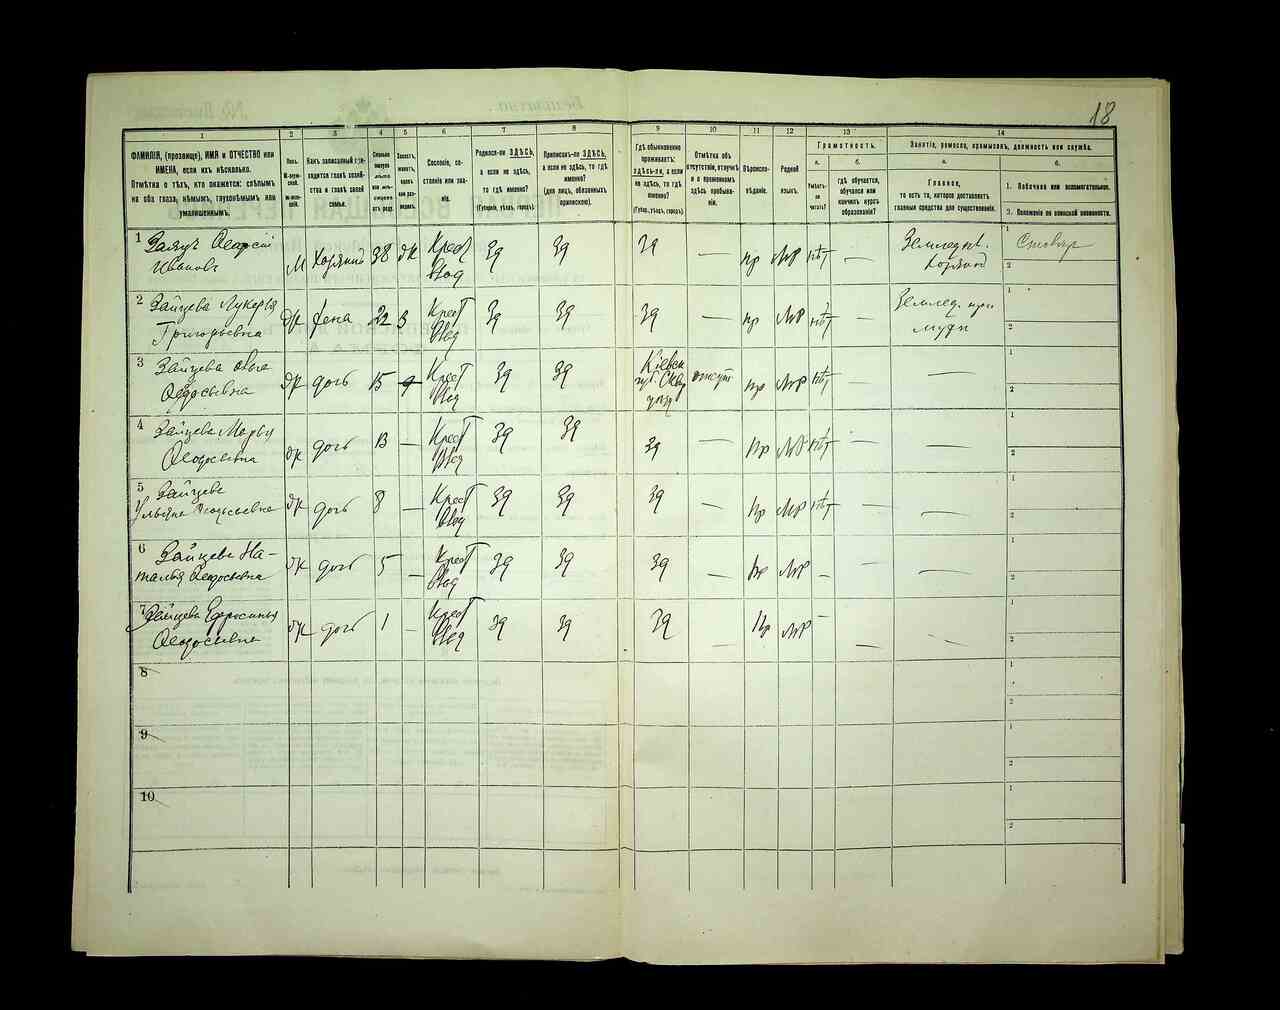 18
1
2
3
4
5
6
7
8
9
10
11
12
13
14
ФАМИЛІЯ, (прозвище), ИМЯ и ОТЧЕСТВО или
ИМЕНА, если ихъ нѣсколько.
Отмѣтка о тѣхъ, кто окажется: слѣпымъ
на оба глаза, нѣмымъ, глухонѣмымъ или
умалишеннымъ.
Полъ.
Какъ записанный при-
ходится главѣ хозяй-
ства и главѣ своей
семьи.
Сословіе, со-
стояніе или зва-
ніе.
Родился-ли ЗДѢСЬ,
а если не здѣсь,
то гдѣ именно?
(Губернія, уѣздъ, городъ).
Приписанъ-ли ЗДѢСЬ,
а если не здѣсь, то гдѣ
именно?
(для лицъ, обязанныхъ
припискою).
Гдѣ обыкновенно
проживаетъ:
здѣсь-ли, а если
не здѣсь, то гдѣ
именно?
(Губ., уѣздъ, городъ).
Отмѣтка объ
отсутствіи, отлучкѣ
и о временномъ
здѣсь пребыва-
ніи.
Вѣроиспо-
вѣданіе.
Родной
языкъ.
Грамотность.
а.
б.
Умѣетъ-
ли
читать?
гдѣ обучается,
обучался или
кончилъ курсъ
образованія?
Занятіе, ремесло, промыселъ, должность или служба.
а.
б.
Главное,
то есть то, которое доставляетъ
главныя средства для существованія.
1. Побочное или вспомогательное.
2. Положеніе по воинской повинности.
1 Заяцъ Ѳеодосій
Ивановъ
М
Хозяинъ
38
Крест
влад
зд
зд
зд
—
пр
мр
нѣт
—
Земледѣл.
хозяинъ
1
Столяр
2
2 Зайцева Лукерья
Григорьевна
ж
жена
Крест
влад
зд
зд
зд
—
пр
мр
нѣт
—
Землед. при
мужѣ
1
2
3 Зайцева
Ѳедосьевна
ж
дочь
15
Крест
влад
зд
зд
Кіевск
губ. Сквир
уѣзд
отсут
пр
мр
нѣт
—
—
1
2
4 Зайцева Марья
Ѳеодосьевна
ж
дочь
13
—
Крест
влад
зд
зд
зд
—
пр
мр
нѣт
—
—
1
2
5 Зайцева
Ульяна Ѳеодосьевна
ж
дочь
8
—
Крест
влад
зд
зд
зд
—
пр
мр
нѣт
—
—
1
2
6 Зайцева На-
талья Ѳеодосьевна
ж
дочь
5
—
Крест
влад
зд
зд
зд
—
пр
мр
—
—
—
1
2
7 Зайцева Ефросинья
Ѳеодосьевна
ж
дочь
1
—
Крест
влад
зд
зд
зд
—
пр
мр
—
—
—
1
2
8
1
2
9
1
2
10
1
2